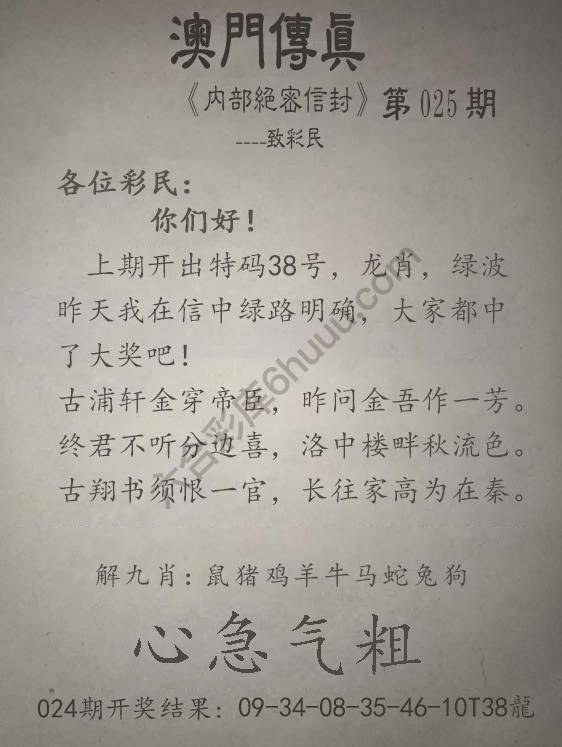 澳門傳眞
《内部絕密信封》第025期
----致彩民
各位彩民：
你们好！
上期开出特码38号，龙肖，绿波
昨天我在信中绿路明确，大家都中
了大奖吧！
古浦轩金穿帝臣，昨问金吾作一芳。
终君不听分边喜，洛中楼畔秋流色。
古翔书须恨一官，长往家高为在秦。
六合彩库6huuu.com
解九肖：鼠猪鸡羊牛马蛇兔狗
心急气粗
024期开奖结果：09-34-08-35-46-10T38龍